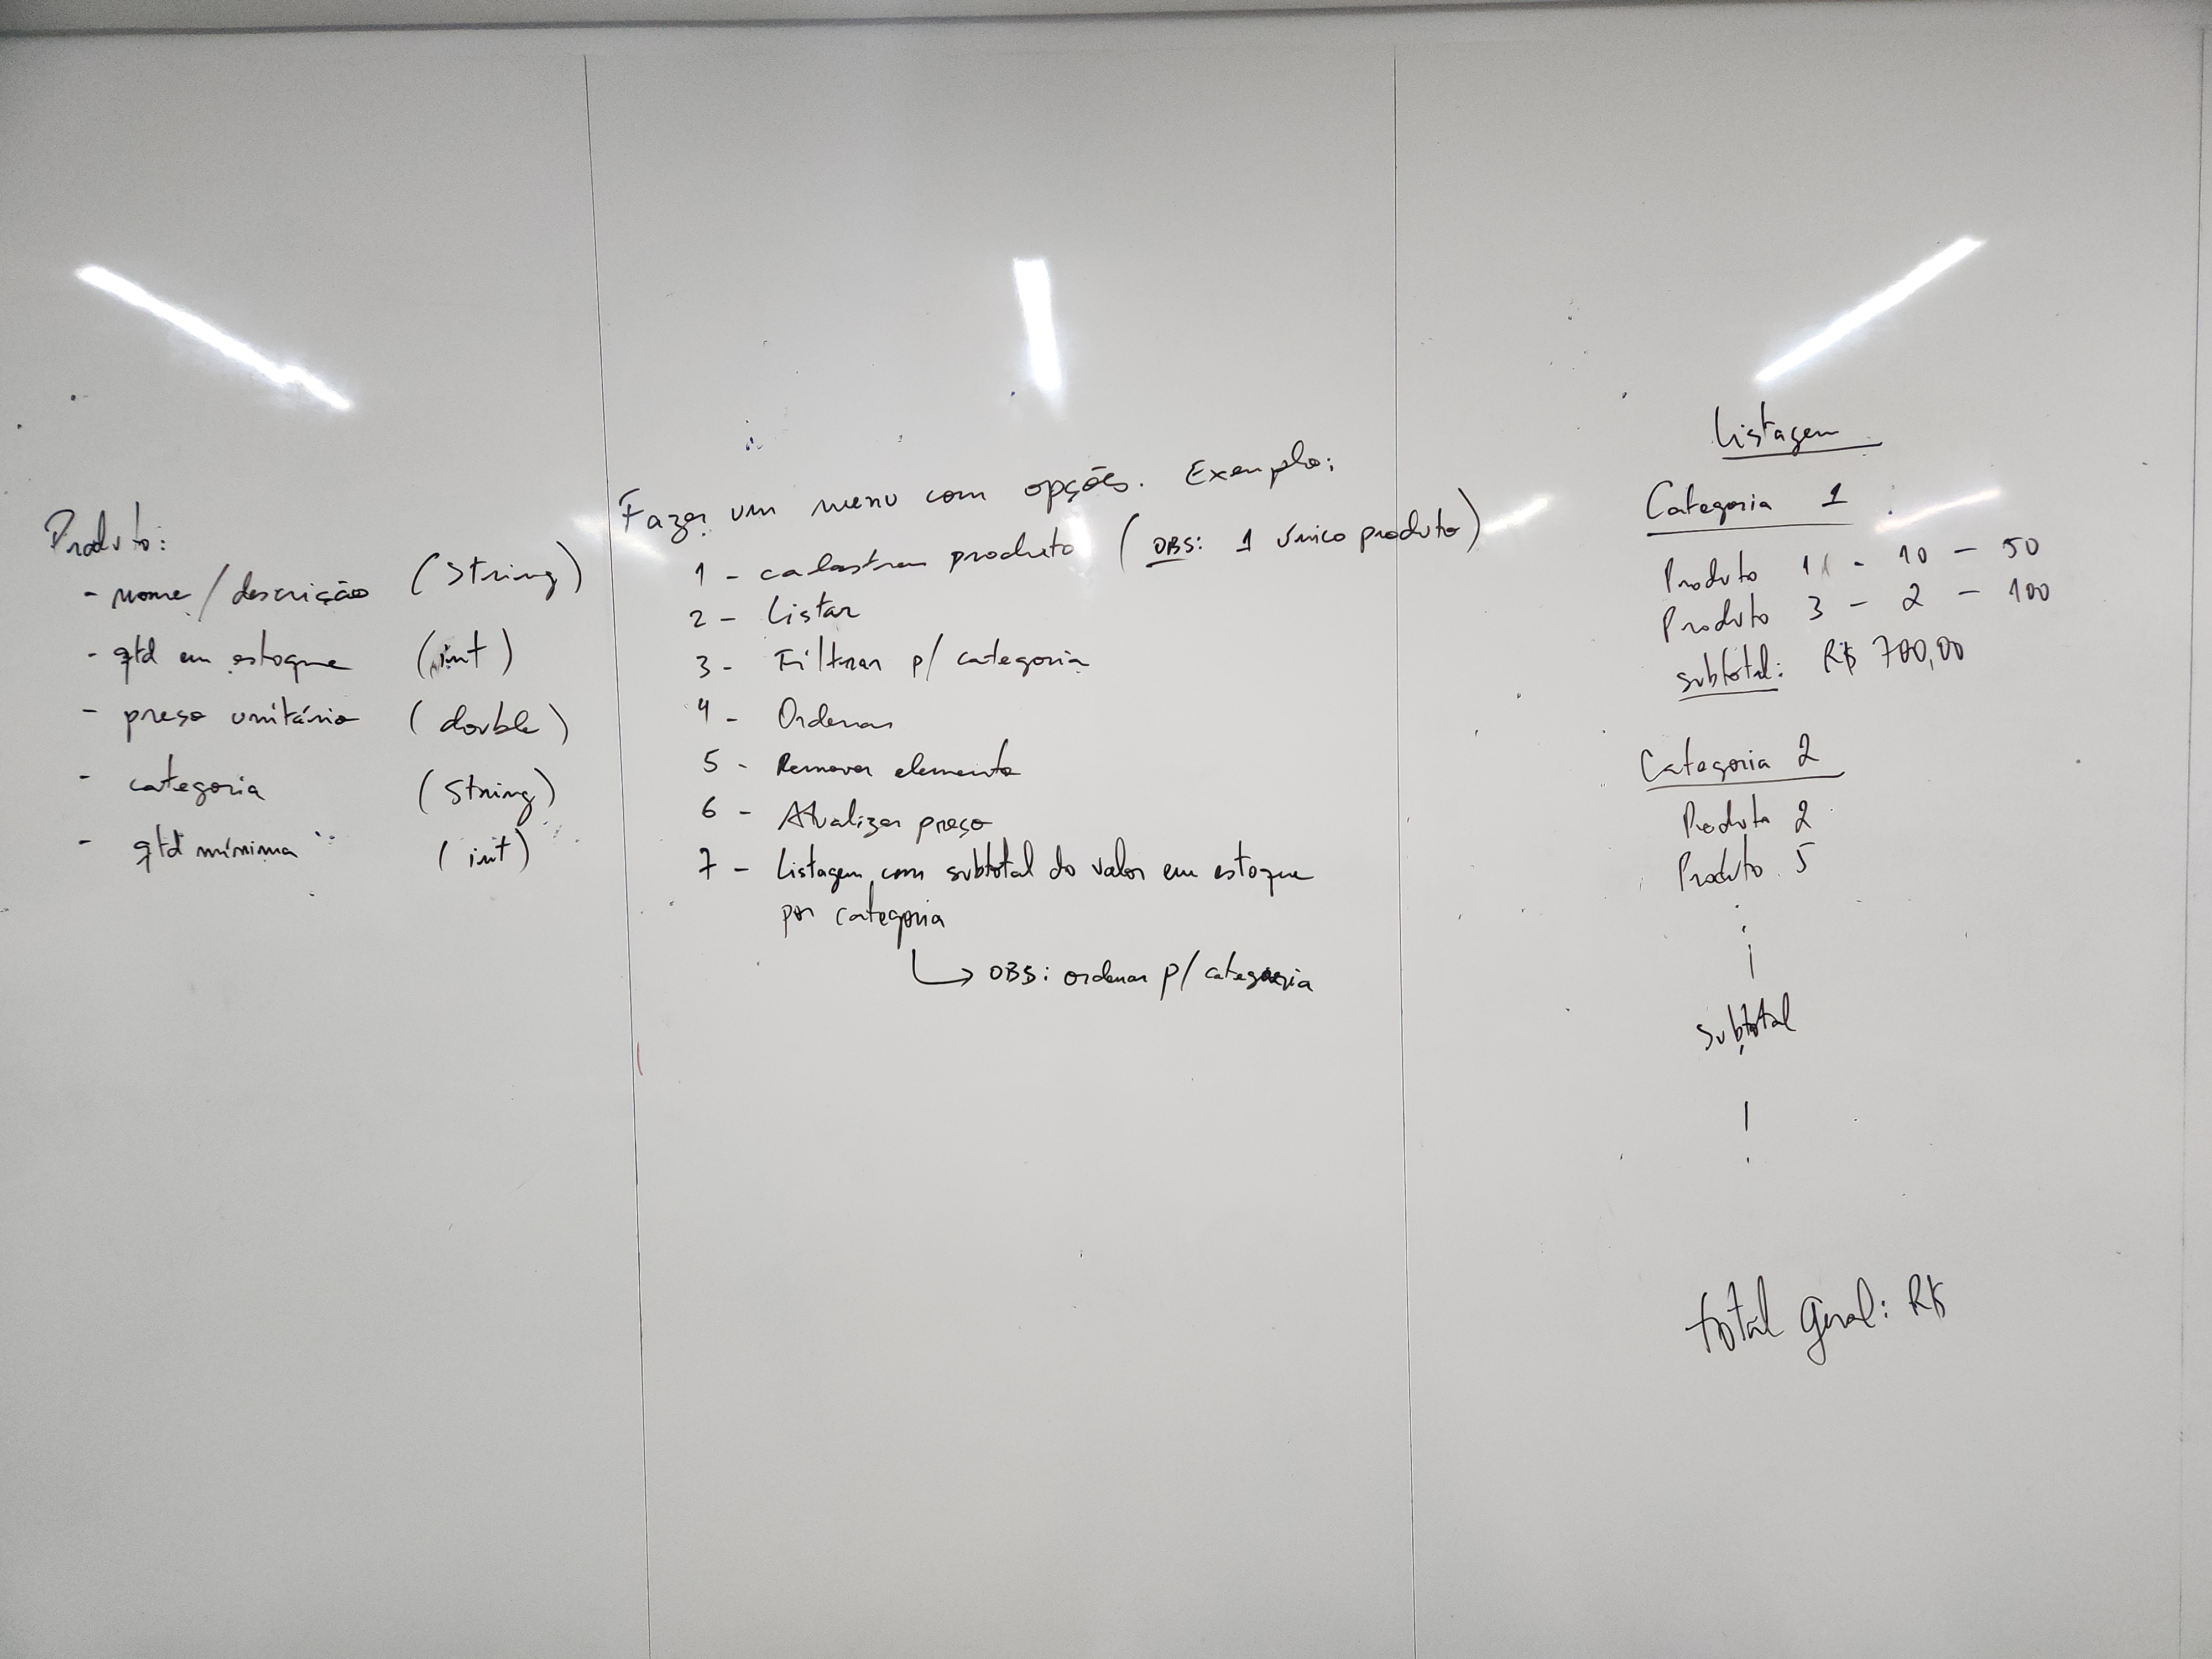 Produto:
- nome/descrição (String)
- qtd em estoque (int)
- preço unitário (double)
- categoria (String)
- qtd mínima (int)
Fazer um menu com opções. Exemplo:
1 - cadastrar produto (OBS: 1 único produto)
2 - Listar
3 - Filtrar p/ categoria
4 - Ordenar
5 - Remover elemento
6 - Atualizar preço
7 - Listagem com subtotal do valor em estoque
por categoria
→ OBS: ordenar p/ categoria
Listagem
Categoria 1
Produto 1 - 10 - 50
Produto 3 - 2 - 100
subtotal: R$ 700,00
Categoria 2
Produto 2
Produto 5
subtotal
total geral: R$